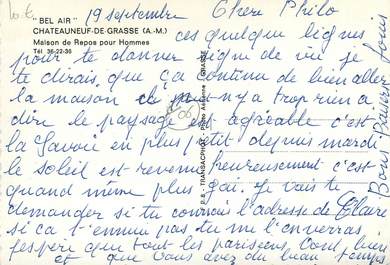 "BEL AIR"
CHATEAUNEUF-DE-GRASSE (A.-M.)
Maison de Repos pour Hommes
Tél 36-22-36
19 septembre Chere Philo
ces quelques lignes
pour te donner signe de vie je
te dirais, que ça continu de bien aller
la maison il n'y a trop rien a
dire le paysage est agréable c'est
la Savoie en plus petit depuis mardi
le soleil est revenu heureusement c'est
quand même plus gai. Je vais te
demander si tu connais l'adresse de Clair
si ca t'ennuie pas tu me l'enverras
j'espère que tout les parisiens vont bien
et que vous avez du beau temps
Bons Baisers
P.S. - TRANSACPHOT - Photo Aérienne - GRASSE